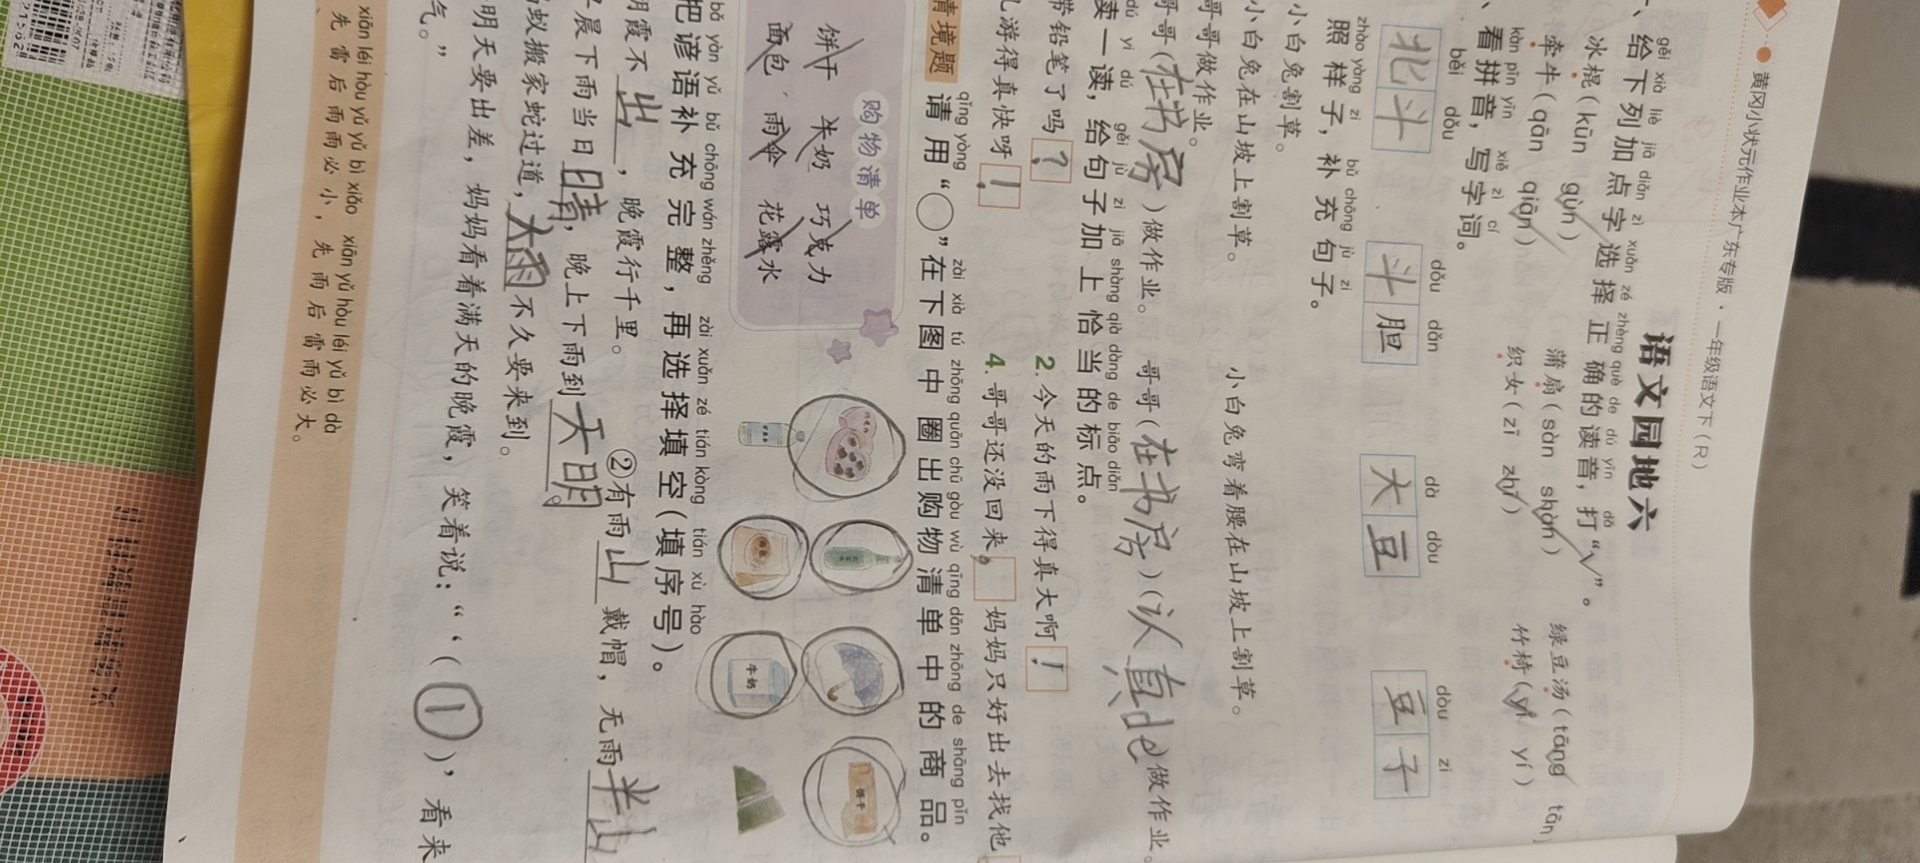 黄冈小状元作业本广东专版·一年级语文下（R）
语文园地六
gěi xià liè jiā diǎn zì xuǎn zé zhèng què de dú yīn dǎ
、给下列加点字选择正确的读音，打“√”。
冰棍（kūn gùn） 蒲扇（sàn shàn） 绿豆汤（tāng tān
牵牛（qān qiān） 织女（zī zhī） 竹椅（yǐ yí）
kàn pīn yīn xiě zì cí
、看拼音，写字词。
běi dǒu dǒu dǎn dà dòu dòu zi
北斗 斗胆 大豆 豆子
zhào yàng zi bǔ chōng jù zi
照样子，补充句子。
小白兔割草。
小白兔在山坡上割草。 小白兔弯着腰在山坡上割草。
哥哥做作业。
哥哥（在书房）做作业。 哥哥（在书房）（认真de）做作业。
dú yi dú gěi jù zi jiā shàng qià dàng de biāo diǎn
读一读，给句子加上恰当的标点。
带铅笔了吗？ 2.今天的雨下得真大啊！
儿游得真快呀！ 4.哥哥还没回来，妈妈只好出去找他
qǐng yòng zài xià tú zhōng quān chū gòu wù qīng dān zhōng de shāng pǐn
情境题 请用“○”在下图中圈出购物清单中的商品。
购物清单
饼干 牛奶 巧克力
面包 雨伞 花露水
牛奶
饼干
bǎ yàn yǔ bǔ chōng wán zhěng zài xuǎn zé tián kòng tián xù hào
把谚语补充完整，再选择填空（填序号）。
朝霞不出，晚霞行千里。 ②有雨山戴帽，无雨半山
晨下雨当日晴，晚上下雨到天明。
蚂蚁搬家蛇过道，大雨不久要来到。
明天要出差，妈妈看着满天的晚霞，笑着说：“‘（①）’，看来
气。”
xiān léi hòu yǔ yǔ bì xiǎo xiān yǔ hòu léi yǔ bì dà
先雷后雨雨必小，先雨后雷雨必大。